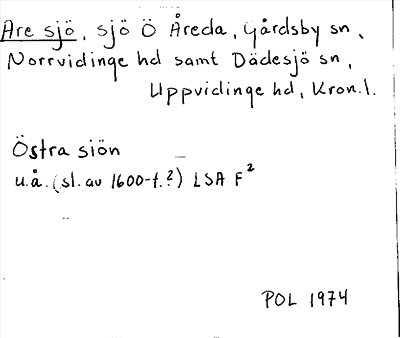 Åre sjö, sjö Ö Åreda, Gårdsby sn,
Norrvidinge hd samt Dädesjö sn,
Uppvidinge hd, Kron.l.
Östra siön
u.å. (sl. av 1600-t.?) LSA F²
POL 1974